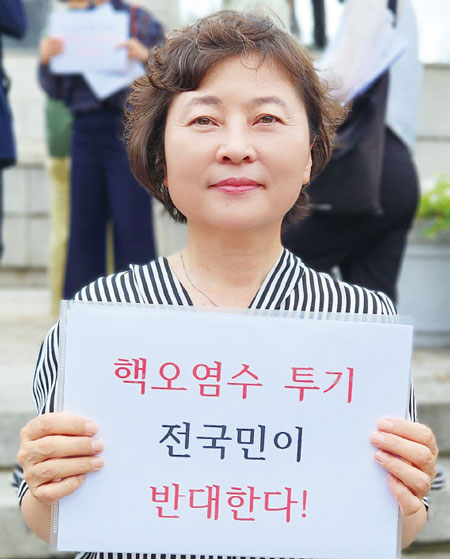 핵오염수 투기
전국민이
반대한다!